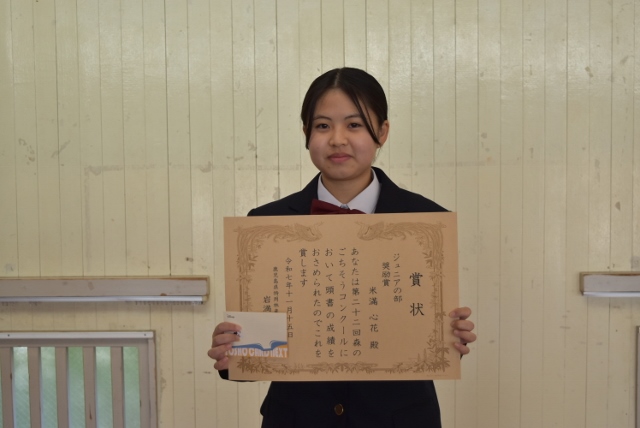 賞状
ジュニアの部
奨励賞
米満 心花 殿
あなたは第二十二回森の
ごちそうコンクールに
おいて頭書の成績を
おさめられたのでこれを
賞します
令和七年十一月十五日
鹿児島県特用林
CARD NEXT